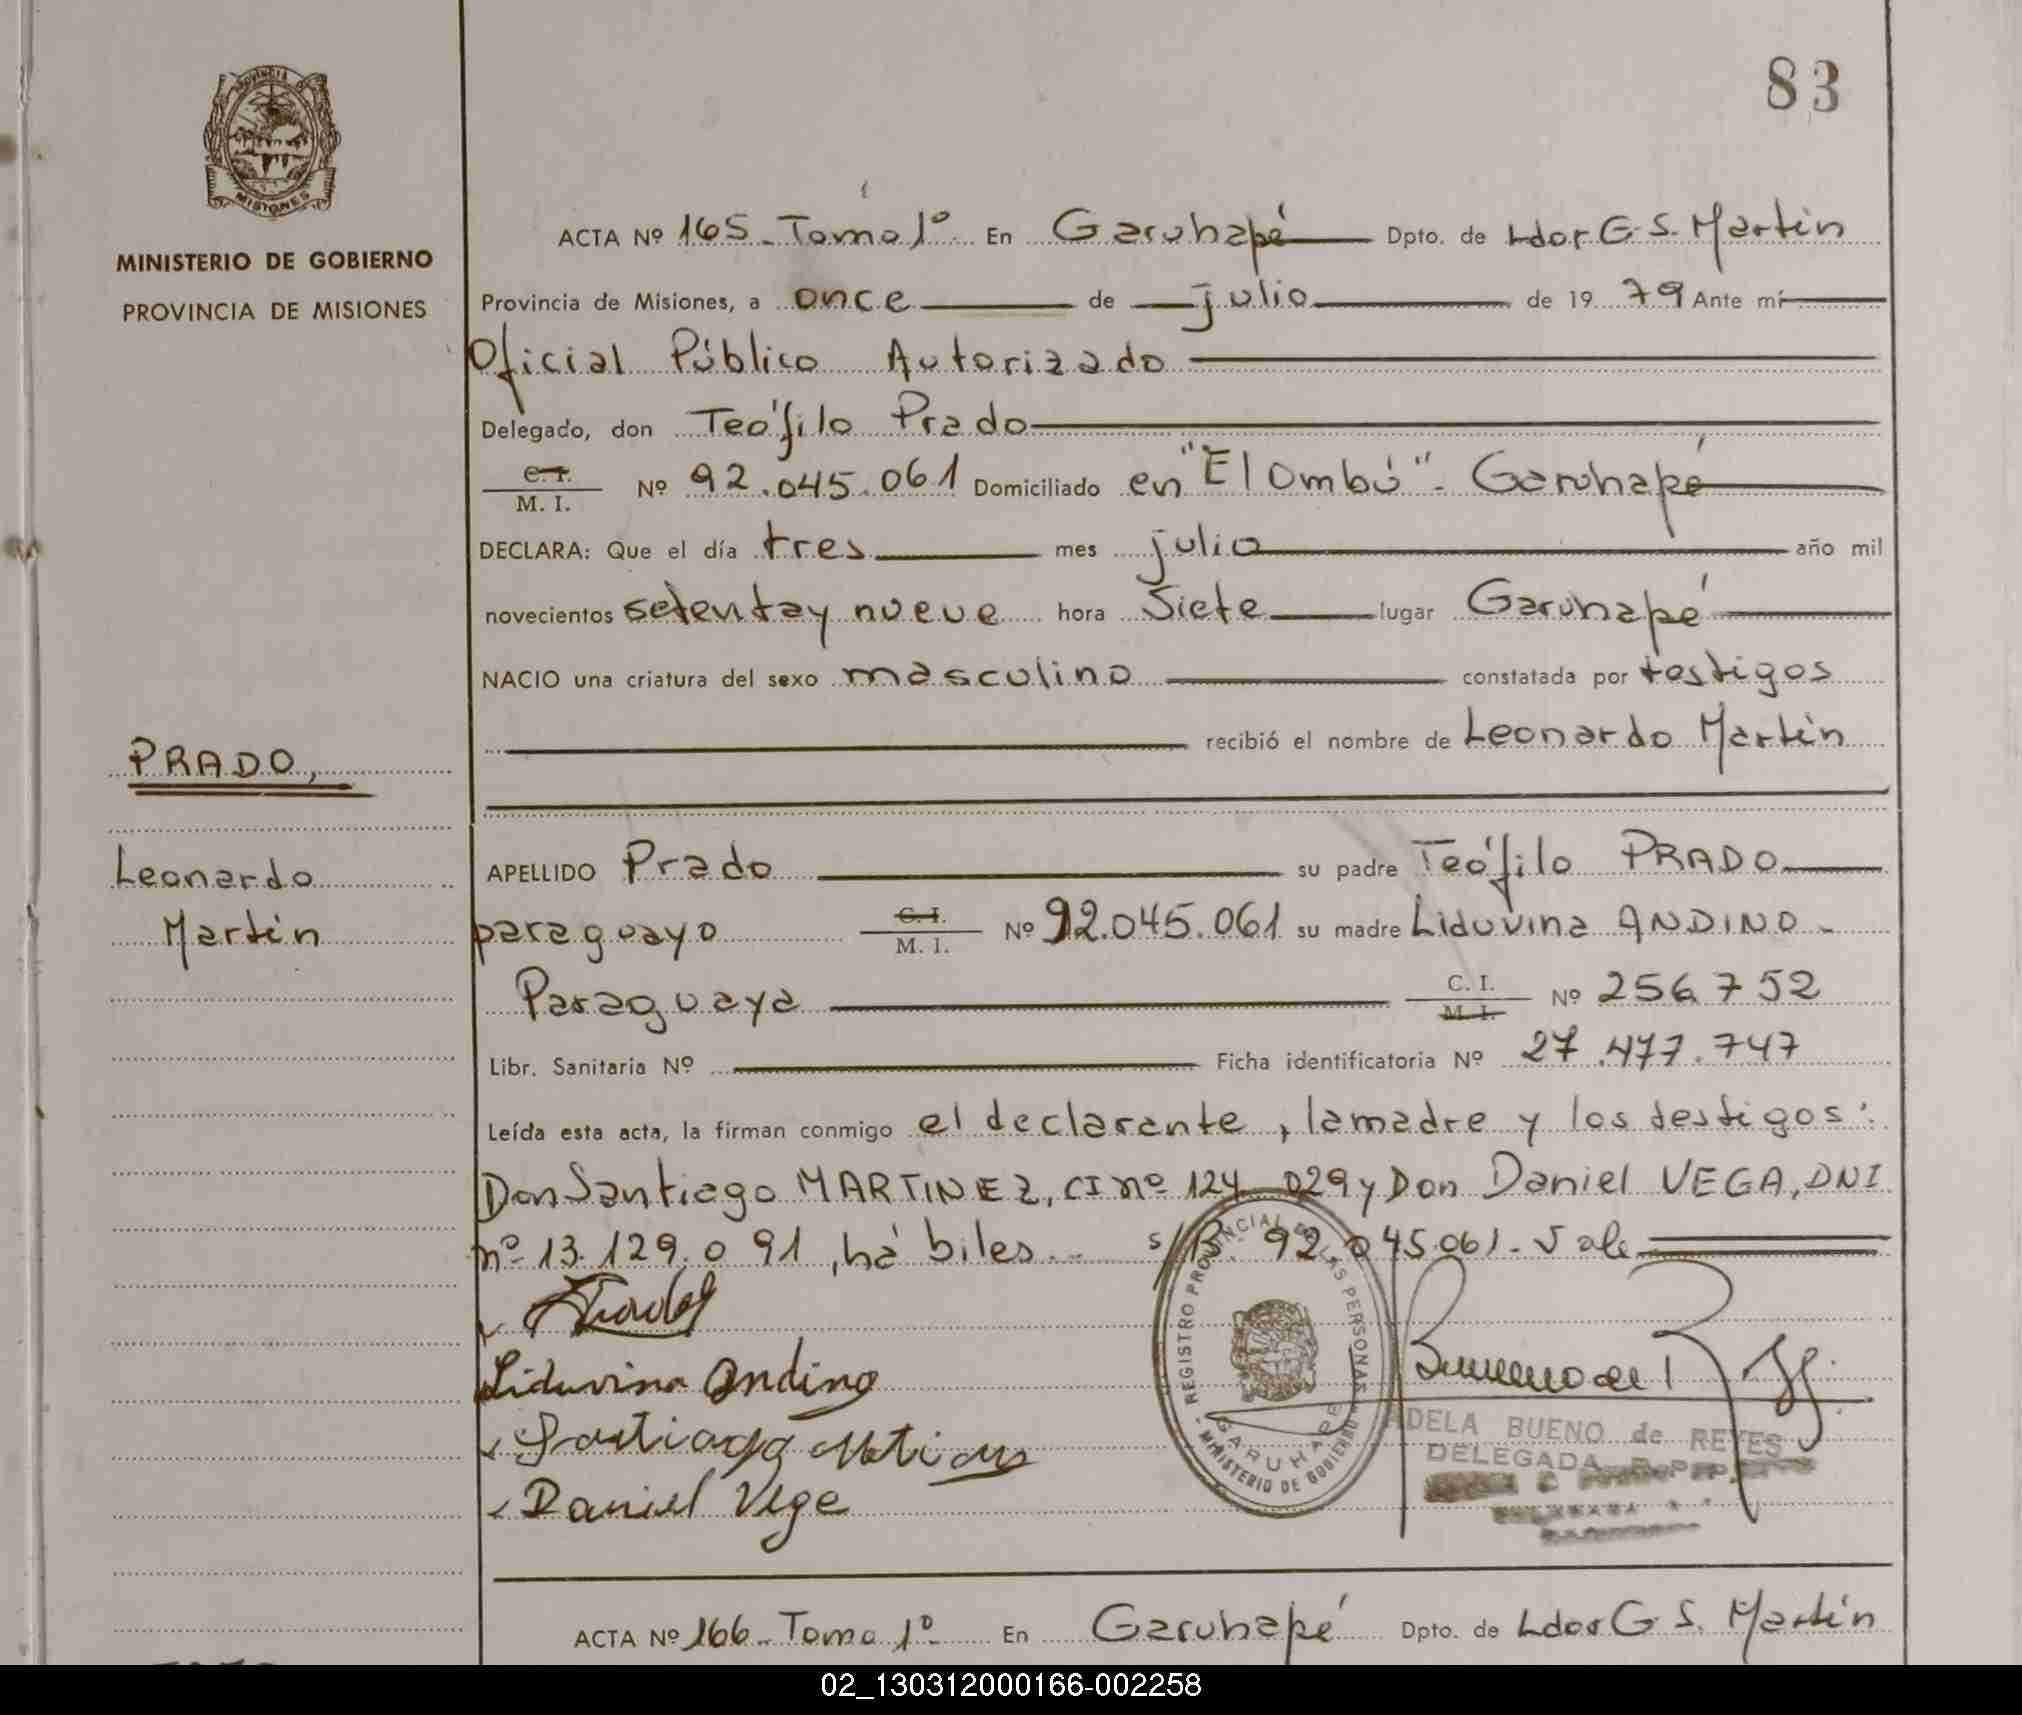 83
PROVINCIA DE
MISIONES
MINISTERIO DE GOBIERNO
PROVINCIA DE MISIONES
ACTA Nº 165 - Tomo 1º En Garuhapé Dpto. de Ldor G. S. Martín
Provincia de Misiones, a once de julio de 1979 Ante mí
Oficial Público Autorizado
Delegado, don Teófilo Prado
C. I.
M. I. Nº 92.045.061 Domiciliado en "El Ombú" - Garuhapé
DECLARA: Que el día tres mes julio año mil
novecientos setenta y nueve hora Siete lugar Garuhapé
NACIO una criatura del sexo masculino constatada por testigos
recibió el nombre de Leonardo Martín
PRADO,
Leonardo
Martín
APELLIDO Prado su padre Teófilo PRADO
paraguayo C. I. M. I. Nº 92.045.061 su madre Liduvina ANDINO -
Paraguaya C. I. M. I. Nº 256.752
Libr. Sanitaria Nº Ficha identificatoria Nº 27.477.747
Leída esta acta, la firman conmigo el declarante, la madre y los testigos:
Don Santiago MARTINEZ, CI nº 124.029 y Don Daniel VEGA, DNI
nº 13.129.091, hábiles.- s/R. 92.045.061 - Vale
Liduvina Andino
Santiago
Daniel Vega
REGISTRO PROVINCIAL DE LAS PERSONAS
GARUHAPE
MINISTERIO DE GOBIERNO
ADELA BUENO de REYES
DELEGADA R.P.P.
ACTA Nº 166 - Tomo 1º En Garuhapé Dpto. de Ldor G. S. Martín
02_130312000166-002258